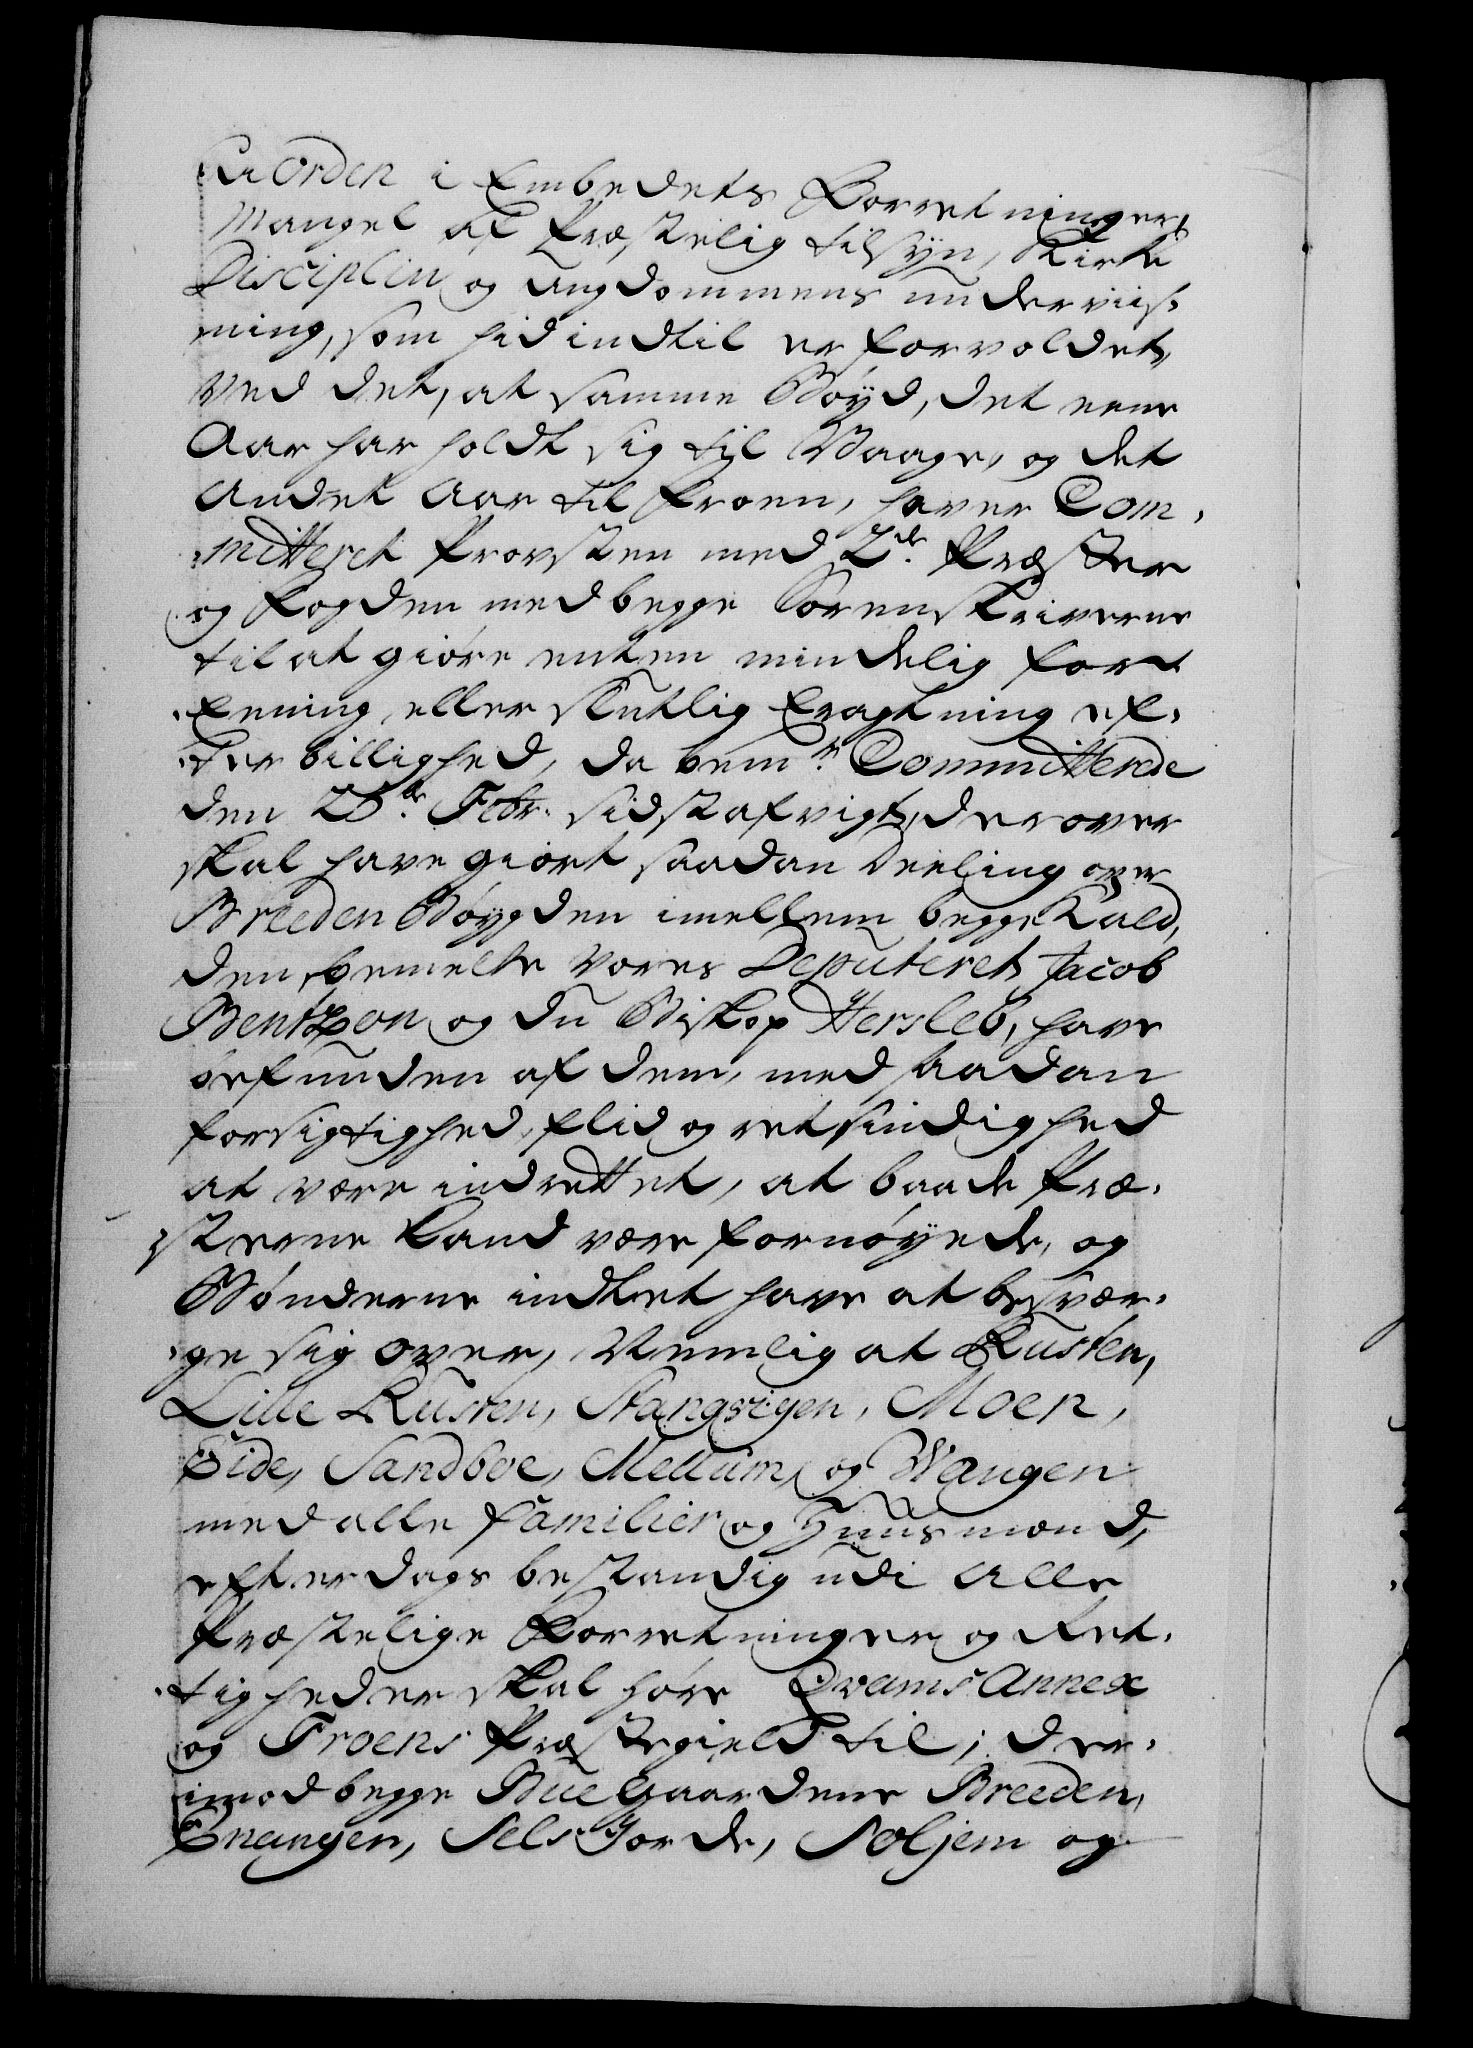 Uorden i Embedets Forretninger,
Mangel af Præstelig tilsyn, Kirke
Disciplin og Ungdommens underviis-
ning, som hid indtil er forvoldet,
ved det, at samme Bøyd, det eene
Aar har holdt sig til Waage, og det
andet Aar til Froen, haver Com-
mitteret Provsten med 2de Præster
og Fogden med begge Sorenskriverne
til at giøre enten mindelig for-
Eening, eller sluttlig Eragtning ef-
ter billighed, da bemte Committerede
den 25de Febr. sidst afvigt, derover
skal have giort saadan Deeling over
Breeden Bøygden imellem begge Kald,
den bemelte vores Deputeret Jacob
Bentzon og du Biskop Hersleb, have
befunden af dem, med saadan
forsigtighed, flid og retsindighed
at være indrettet, at baade Præ-
sterne kand være fornøyede, og
Bønderne indtet have at besvær-
ge sig over, Nemlig at Rusten,
Lille Rusten, Stangvigen, Moen,
Eide, Sandboe, Mellum, og Wangen
med alle Familier og Huusmænd,
efter dags bestandig udi alle
Præstelige Forretninger og Ret-
tigheder skal høre Qvams Annex
og Froens Præstegield til; der-
imod begge Bue Gaardene Breeden,
Enangen, Sels Jorde, Soljem og